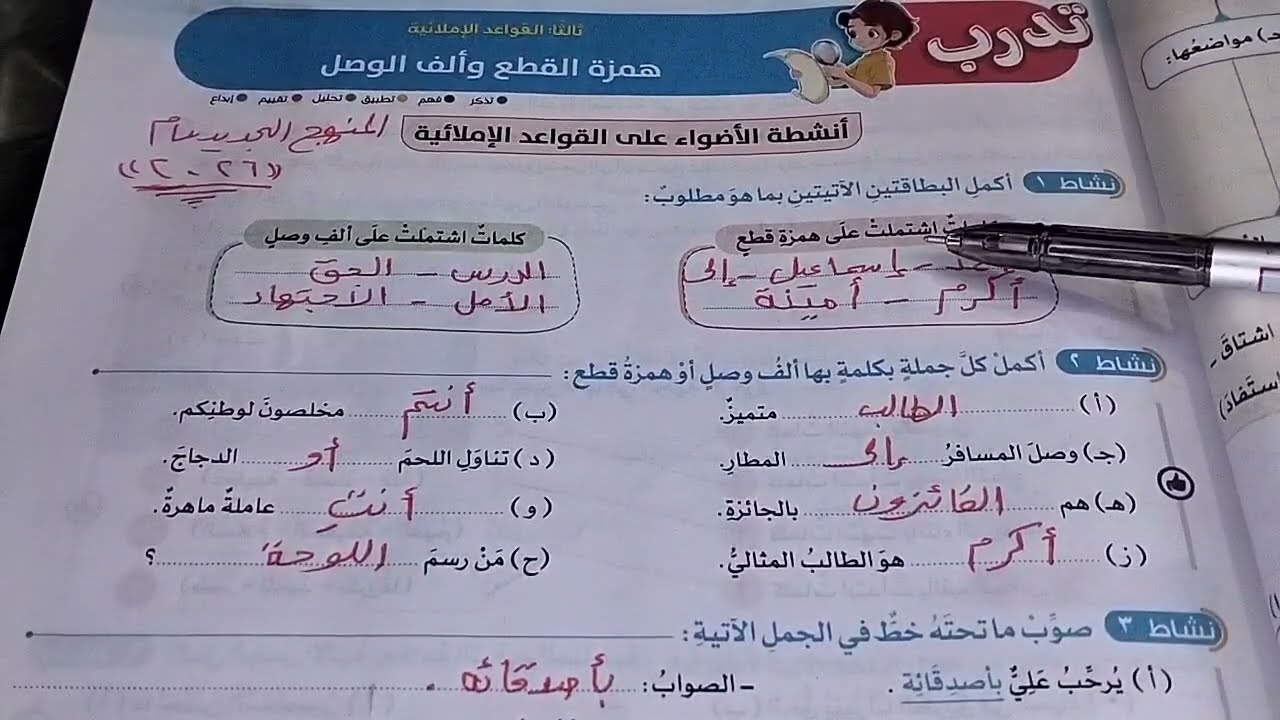 تدرب
ثالثًا: القواعد الإملائية
همزة القطع وألف الوصل
تذكر فهم تطبيق تحليل تقييم إبداع
أنشطة الأضواء على القواعد الإملائية
المنهج الجديد عام
((٢٠٢٦))
نشاط ١ أكملِ البطاقتينِ الآتيتينِ بما هوَ مطلوبٌ:
اشتملتْ علَى همزةِ قطعٍ
إسماعيل - إلى
أكرم - أمينة
كلماتٌ اشتملَتْ علَى ألفِ وصلٍ
الدرس - الحق
الأمل - الاجتهاد
نشاط ٢ أكملْ كلَّ جملةٍ بكلمةٍ بها ألفُ وصلٍ أوْ همزةُ قطعٍ:
(أ) الطالب متميزٌ.
(ب) أنتم مخلصونَ لوطنِكم.
(جـ) وصلَ المسافرُ إلى المطارِ.
(د) تناوَلِ اللحمَ أو الدجاجَ.
(هـ) هم الفائزون بالجائزةِ.
(و) أنتِ عاملةٌ ماهرةٌ.
(ز) أكرم هوَ الطالبُ المثاليُّ.
(ح) مَنْ رسمَ اللوحة ؟
نشاط ٣ صوِّبْ ما تحتَهُ خطٌّ في الجملِ الآتيةِ:
(أ) يُرحِّبُ عَلِيٌّ بأصدِقَائِة .
- الصوابُ: بأصدقائه .
جـ) مواضعُها:
اشتاقَ -
استفادَ)